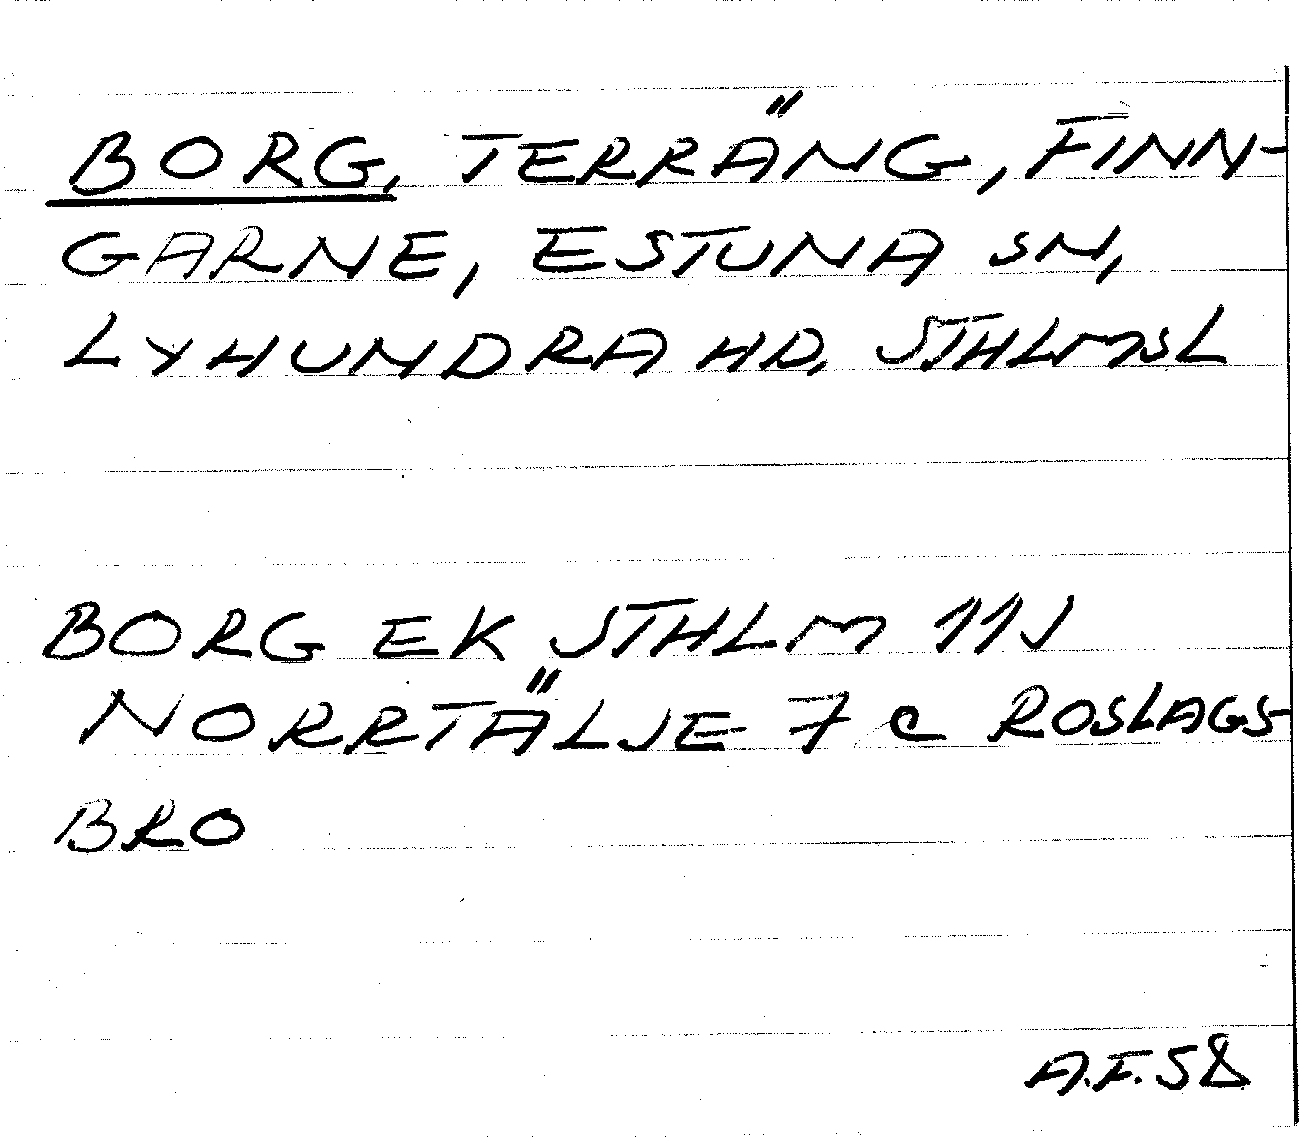 BORG, TERRÄNG, FINN-
GARNE, ESTUNA SN,
LYHUNDRA HD, STHLMSL
BORG EK STHLM 11J
NORRTÄLJE 7 c ROSLAGS-
BRO
A.F. 58